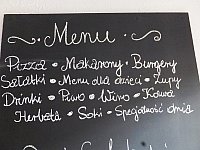 Menu
Pizza • Makarony • Burgery
Sałatki • Menu dla dzieci • Zupy
Drinki • Piwo • Wino • Kawa
Herbata • Soki • Specjalność dnia